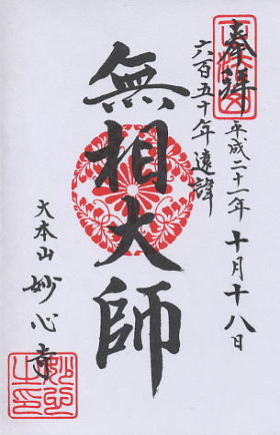 奉拝
平成二十一年十月十八日
六百五十年遠諱
無相大師
大本山妙心寺